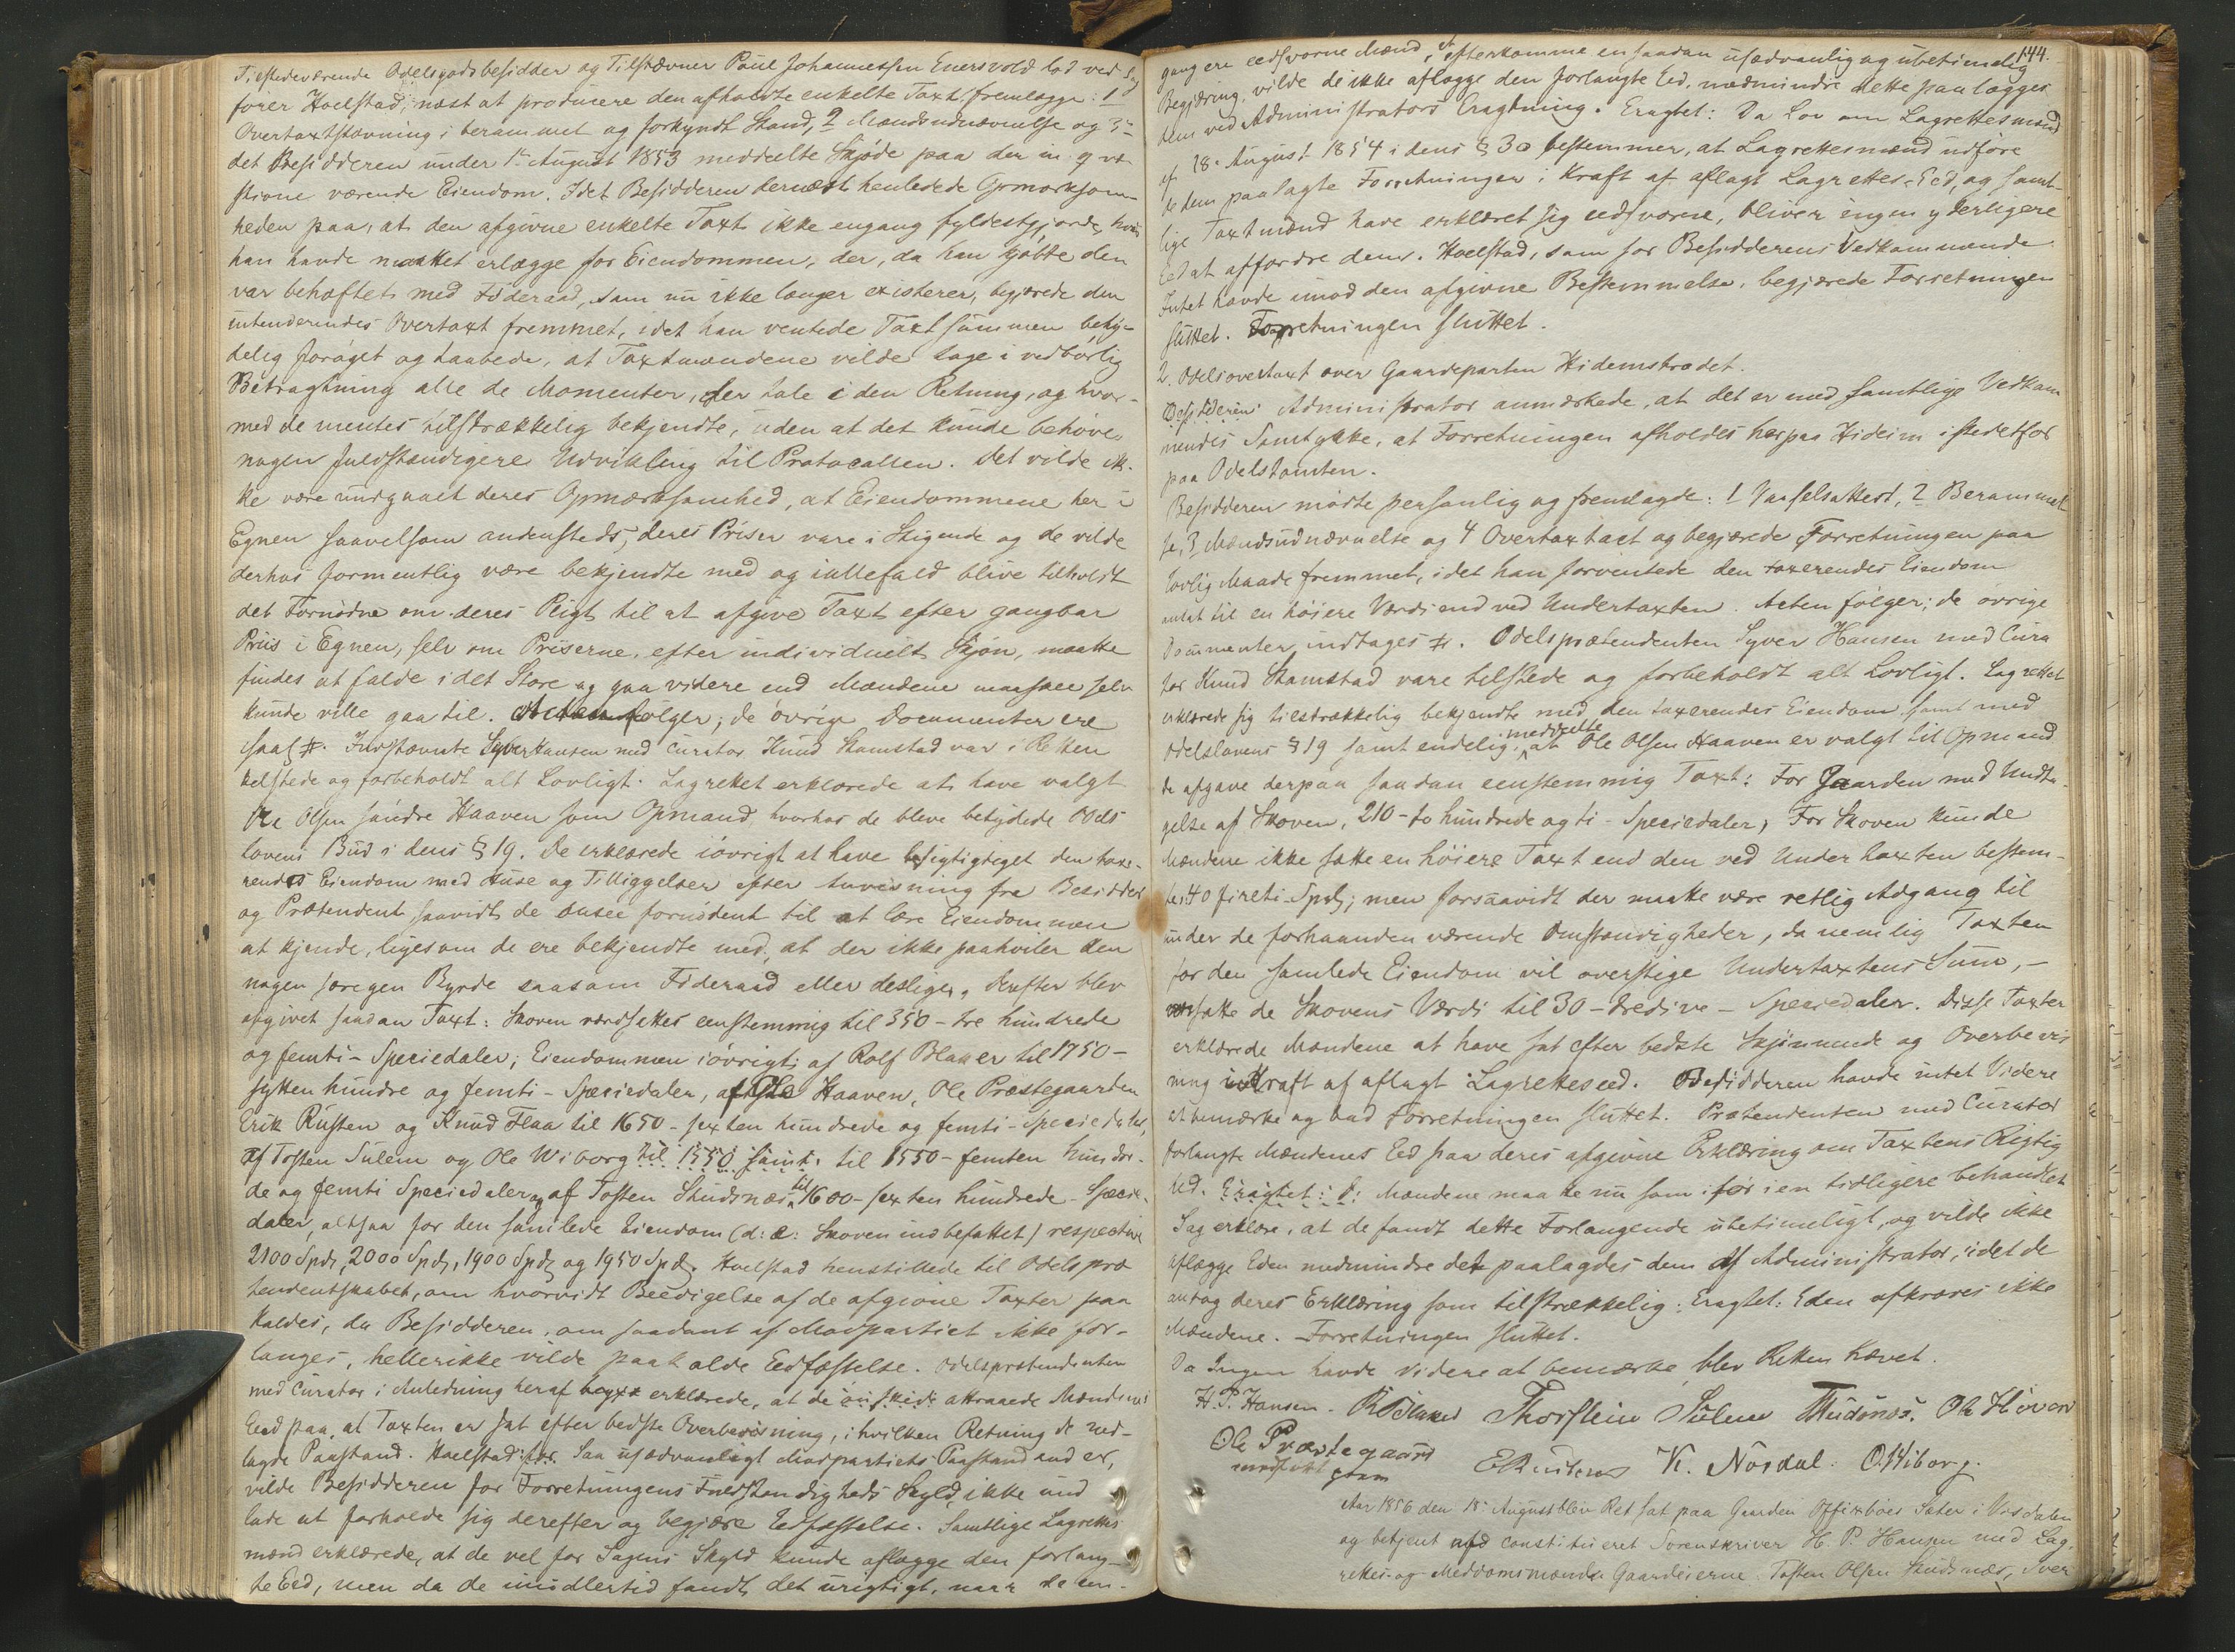 Tilstedeværende Odelsgodsbesidder og Tilstævner Poul Johannessen Enersvold lod ved Sag
fører Hoelstad, næst at producere den afholdte enkelte Taxt, fremlægge: 1
Overtaxtstævning i berammet og forkyndt Stand, 2 Mændsudnævnelse og 3
det Besidderen under 1te August 1853 meddeelte Skjøde paa den in qvæ
stione værende Eiendom. Idet Besidderen dernæst henledede Opmærksom-
heden paa, at den afgivne enkelte Taxt ikke engang fyldestgjorde, hvad
han havde maattet erlægge for Eiendommen, der, da han kjøbte den
var behæftet med Føderaad, som nu ikke længer existerer, begjærede den
intenderendes Overtaxt fremmet, idet han ventede Taxtsummen bety-
delig forøget og haabede, at Taxtmændene vilde tage i vedbørlig
Betragtning alle de Momenter, der tale i den Retning, og hvor-
med de mentes tilstrækkelig bekjendte, uden at det kunde behøves
nogen fuldstændigere Udvikling til Protocallen. Det vilde ik-
ke være undgaaet deres Opmærksomhed, at Eiendommene her i
Egnen saavelsom andensteds, deres Priser vare i Stigende og de vilde
derhos formentlig være bekjendte med og iallefald blive tilholdt
det Fornødne om deres Pligt til at afgive Taxt efter gangbar
Priis i Egnen, selv om Priserne, efter individuelt Skjøn, maatte
findes at falde i det Store og gaa videre end Mændene maaskee selv
kunde ville gaa til. Acten følger; de øvrige Documenter ere
saal. #. Indstævnte Syver Hansen med Curator Knud Stamstad var i Retten
tilstede og forbeholdt alt Lovligt. Lagrettet erklærede at have valgt
Ole Olsen søndre Haaven som Opmand, hvorhos de bleve betydede Odels
lovens Bud i dens § 19. De erklærede iøvrigt at have besigtigtiget den taxe-
rendes Eiendom med Huse og Tilliggelser efter Anvisning fra Besidder
og Prætendent saavidt de ansee fornødent til at lære Eiendommen
at kjende, ligesom de ere bekjendte med, at der ikke paahviler den
nogen særegen Byrde saasom Føderaad eller deslige. Derefter blev
afgivet saadan Taxt: Skoven værdsættes eenstemmig til 350 - tre hundrede
og femti - Speciedaler; Eiendommen iøvrigt af Rolf Blaker til 1750 -
sytten hundre og femti - Speciedaler, af Ole Haaven, Ole Præstegaarden
Erik Rusten og Knud Flaa til 1650 - sexten hundrede og femti - Speciedaler,
af Tosten Sulem og Ole Wiborg til 1550 samt til 1550 - femten hundre-
de og femti Speciedaler og af Tosten Skudsnæs til 1600 - sexten hundrede - Specie-
daler, altsaa for den samlede Eiendom (d: e: Skoven indbefattet) respective
2100 Spd, 2000 Spd, 1900 Spd og 1950 Spd. Hoelstad henstillede til Odelspræ
tendentskabet, om hvorvidt Beedigelse af de afgivne Taxter paa
kaldes, da Besidderen, om saadant af Modpartiet ikke for-
langes, hellerikke vilde paakalde Eedfæstelse. Odelsprætendenten
med Curator i Anledning heraf erklærede, at de attraaede Mændenes
Eed paa, at Taxten er sat efter bedste Overbeviisning, i hvilken Retning de ned-
lagde Paastand. Hoelstad: Saa usædvanligt Modpartiets Paastand end er,
vilde Besidderen for Forretningens Fuldstændigheds Skyld, ikke und
lade at forholde sig derefter og begjære Eedfæstelse. Samtlige Lagrettes
mænd erklærede, at de vel for Sagens Skyld kunde aflægge den forlang-
te Eed, men da de imidlertid fandt det urigtigt, naar de en-
144.
gang ere eedsvorne Mænd, at efterkomme en saadan usædvanlig og ubetimelig
Begjæring, vilde de ikke aflægge den forlangte Eed, medmindre dette paalægges
dem ved Administrators Eragtning. Eragtet: Da Lov om Lagrettesmænd
af 28. August 1854 i dens § 30 bestemmer, at Lagrettesmænd udføre
de dem paalagte Forretninger i Kraft af aflagt Lagrettes-Eed, og samt-
lige Taxtmænd have erklæret sig eedsvorne, bliver ingen yderligere
Eed at affordre dem. Hoelstad, som for Besidderens Vedkommende
Intet havde imod den afgivne Bestemmelse, begjærede Forretningen
sluttet. Forretningen sluttet.
2. Odelsovertaxt over Gaardeparten Hidemstrædet.
Besidderen Administrator anmærkede, at det er med samtlige Vedkom
mendes Samtykke, at Forretningen afholdes her paa Hideim istedetfor
paa Odelstomten.
Besidderen mødte personlig og fremlagde: 1 Vanfelsattest, 2 Berammel
se, 3 Mændsudnævnelse og 4 Overtaxtact og begjærede Forretningen paa
lovlig Maade fremmet, idet han forventede den taxerendes Eiendom
ansat til en høiere Værdi end ved Undertaxten. Acten følger; de øvrige
Documenter indtages #. Odelsprætendenten Syver Hansen med Cura
tor Knud Stamstad vare tilstede og forbeholdt alt Lovligt. Lagrettet
erklærede sig tilstrækkelig bekjendte med den taxerendes Eiendom samt med
Odelslovens § 19 samt endelig meddeelte at Ole Olsen Haaven er valgt til Opmand
de afgave derpaa saadan eenstemmig Taxt: For Gaarden med Undta-
gelse af Skoven, 210 - to hundrede og ti - Speciedaler, For Skoven kunde
Mændene ikke sætte en høiere Taxt end den ved Undertaxten bestem-
te, 40 fireti Spd; men forsaavidt der maatte være retlig Adgang til
under de forhaanden værende Omstændigheder, da nemlig Taxten
for den samlede Eiendom vil overstige Undertaxtens Sum, -
satte de Skovens Værdi til 30 - tredive - Speciedaler. Disse Taxter
erklærede Mændene at have sat efter bedste Skjønnende og Overbevis
ning i Kraft af aflagt Lagretteseed. Besidderen havde intet Videre
at bemærke og bad Forretningen sluttet. Prætendenten med Curator
forlangte Mændenes Eed paa deres afgivne Erklæring om Taxtens Rigtig
hed. Eragtet: Mændene maatte nu som før i en tidligere behandlet
Sag erklære, at de fandt dette Forlangende ubetimeligt, og vilde ikke
aflægge Eden medmindre det paalagdes dem af Administrator, idet de
antog deres Erklæring som tilstrækkelig: Eragtet: Eden afkræves ikke
Mændene. - Forretningen sluttet.
Da Ingen havde Videre at bemærke blev Retten hævet.
H. P. Hansen. R Blaker Thorstein Sulem TSkudsnæs. Ole Høven
Ole Præstegaard E Rusten K. Nørdal. O. Wiborg.
Aar 1856 den 18. August blev Ret sat paa Gaarden Offigsboes Sæter i Visdalen
og betjent af constitueret Sorenskriver H. P. Hansen med Lag
rettes- og Meddomsmænd Gaardeierne Tosten Olsen Skudsnæs, Iver